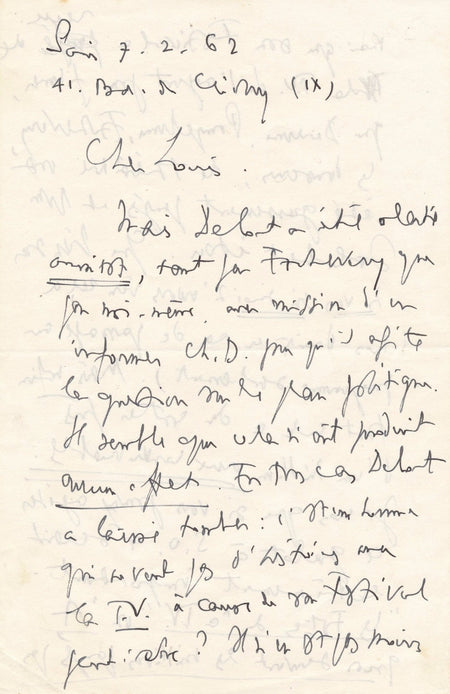 Paris 7. 2. 62
41. Bd. de Clichy (IX)
Cher Louis.
Mais Delort a été alerté
aussitôt, tant par que
par moi-même, avec mission d'en
informer Ch. D. pour qu'il agite
la question sur le plan politique.
Il semble que cela n'ait produit
aucun effet. En tous cas Delort
a laissé tomber : c'est un homme
qui ne veut pas d'histoires avec
la T.V. à cause de son Festival
peut-être ? Il n'en est pas moins